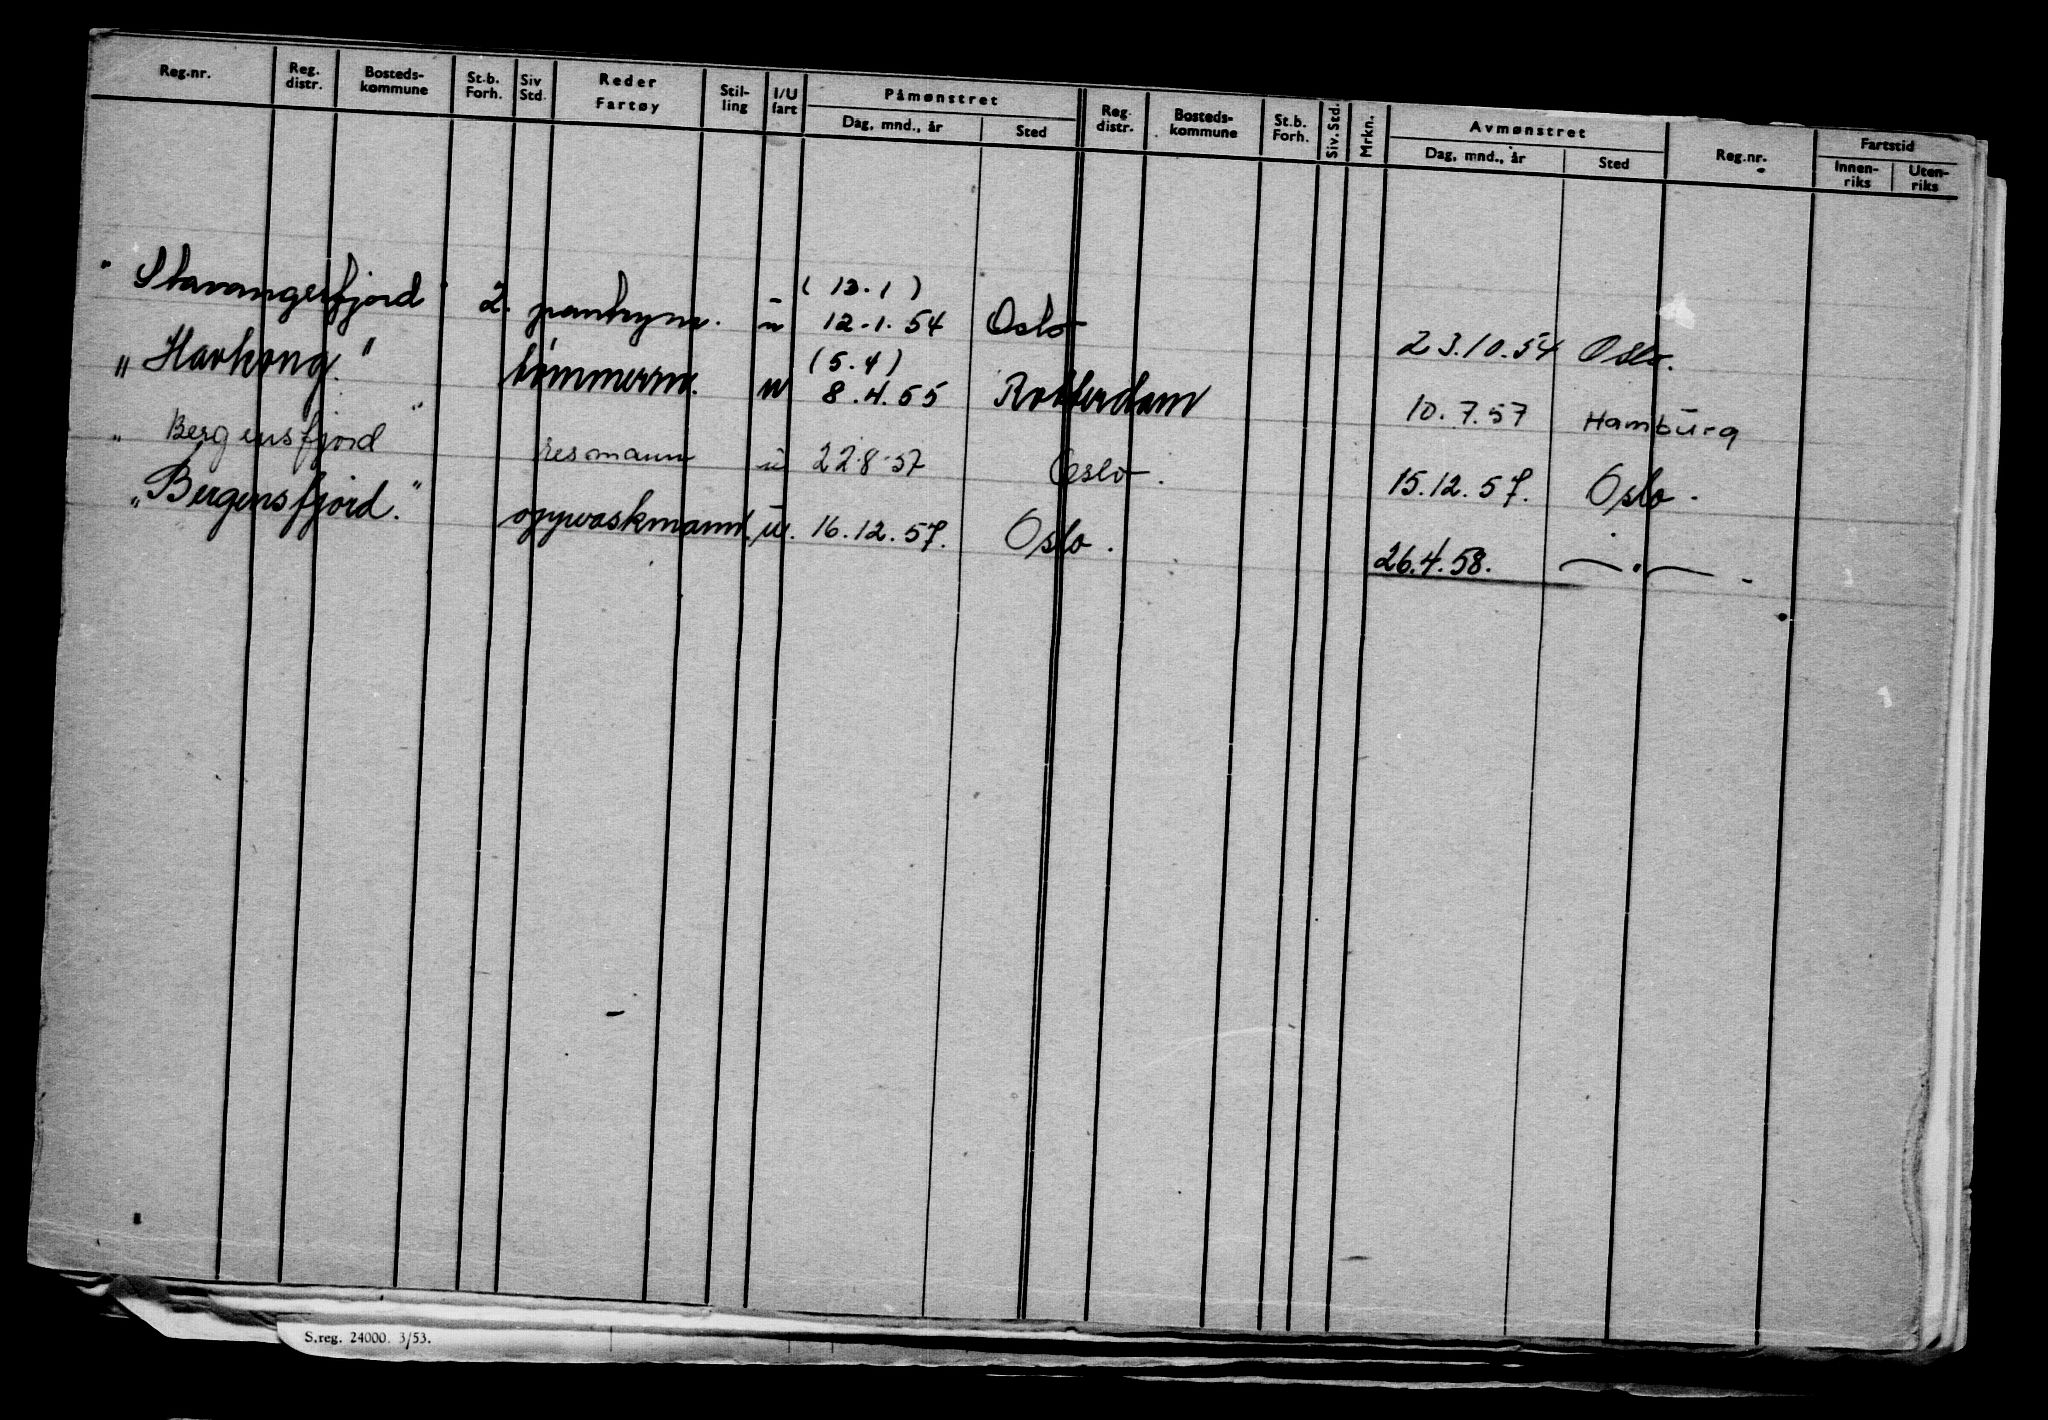 Reg.nr. Reg. distr. Bosteds- kommune St.b. Forh. Siv Std. Reder Fartøy Stil- ling I/U fart Påmønstret Dag, mnd., år Sted Reg. distr. Bosteds- kommune St.b. Forh. Siv. Std. Mrkn. Avmønstret Dag, mnd., år Sted Reg.nr. Fartstid Innen- riks Uten- riks
(13.1)
" Stavangerfjord 2. pantrym. u 12.1.54 Oslo 23.10.54 Oslo.
(5.4)
„ Havkong." tømmerm. u 8.4.55 Rotterdam 10.7.57 Hamburg
„ Bergensfjord " resmann u 22.8.57 Oslo. 15.12.57. Oslo.
„Bergensfjord." oppvaskmann. u. 16.12.57. Oslo. 26.4.58. —"—.
S.reg. 24000. 3/53.